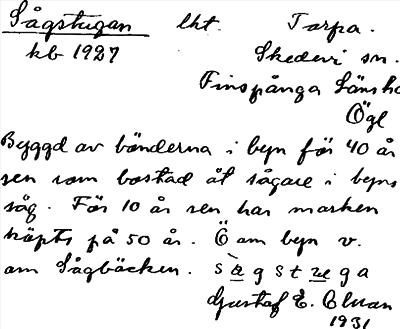 Sågstugan lht. Torpa.
kb 1927 Skedevi sn.
Finspånga Länsho
Ögl
Byggd av bönderna i byn för 40 år
sen som bostad åt sågare i byns
såg. För 10 år sen har marken
köpts på 50 år. Ö om byn v.
om Sågbäcken.
Gustaf E.
1931